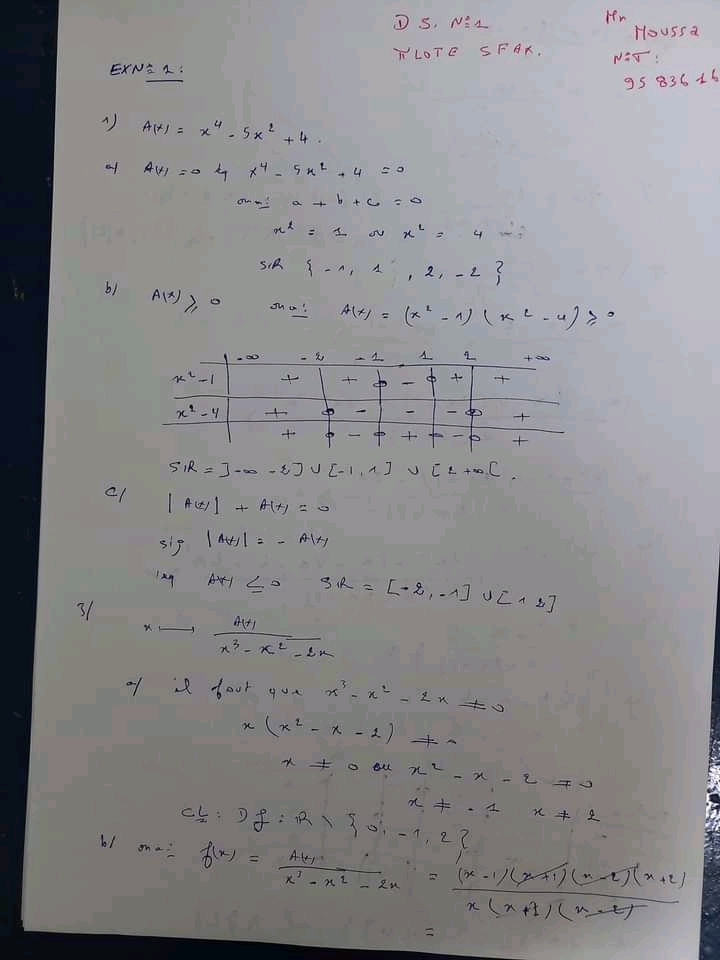 D S. N=1
PILOTE SFAX.
Mr
MOUSSA
N=T:
95 836 16
EXN= 1:
1) A(x) = x⁴ - 5x² + 4.
a) A(x) = 0 sig x⁴ - 5x² + 4 = 0
on a: a + b + c = 0
x² = 1 ou x² = 4
SIR { -1, 1 , 2, -2 }
b) A(x) ⩾ 0 on a: A(x) = (x² - 1)(x² - 4) ⩾ 0
-∞ -2 -1 1 2 +∞
x²-1 + + 0 - 0 + +
x²-4 + 0 - - - 0 +
+ 0 - 0 + 0 - 0 +
SIR = ]-∞ -2] ∪ [-1, 1] ∪ [2 +∞[.
c/ |A(x)| + A(x) = 0
sig |A(x)| = - A(x)
A(x) ≤ 0 SIR = [-2, -1] ∪ [1 2]
3/ x ⟼ A(x) / x³ - x² - 2x
a/ il faut que x³ - x² - 2x ≠ 0
x (x² - x - 2) ≠ 0
x ≠ 0 ou x² - x - 2 ≠ 0
x ≠ -1 x ≠ 2
CL: Df: IR \ { 0, -1, 2 }
b/ on a: f(x) = A(x) / x³ - x² - 2x = (x-1)(x+1)(x-2)(x+2) / x(x+1)(x-2)
=